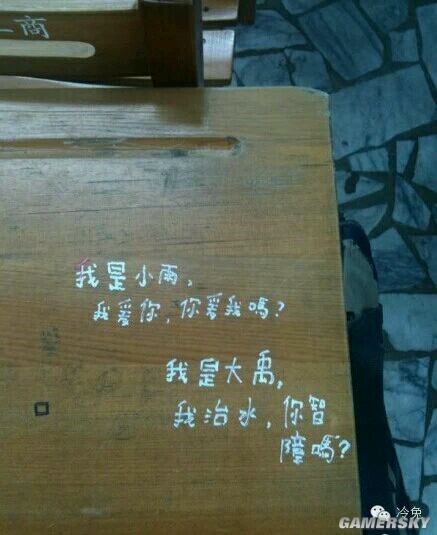 二商
我是小雨,
我爱你,你爱我嗎?
我是大禹,
我治水,你智
障嗎?
冷兔
GAMERSKY